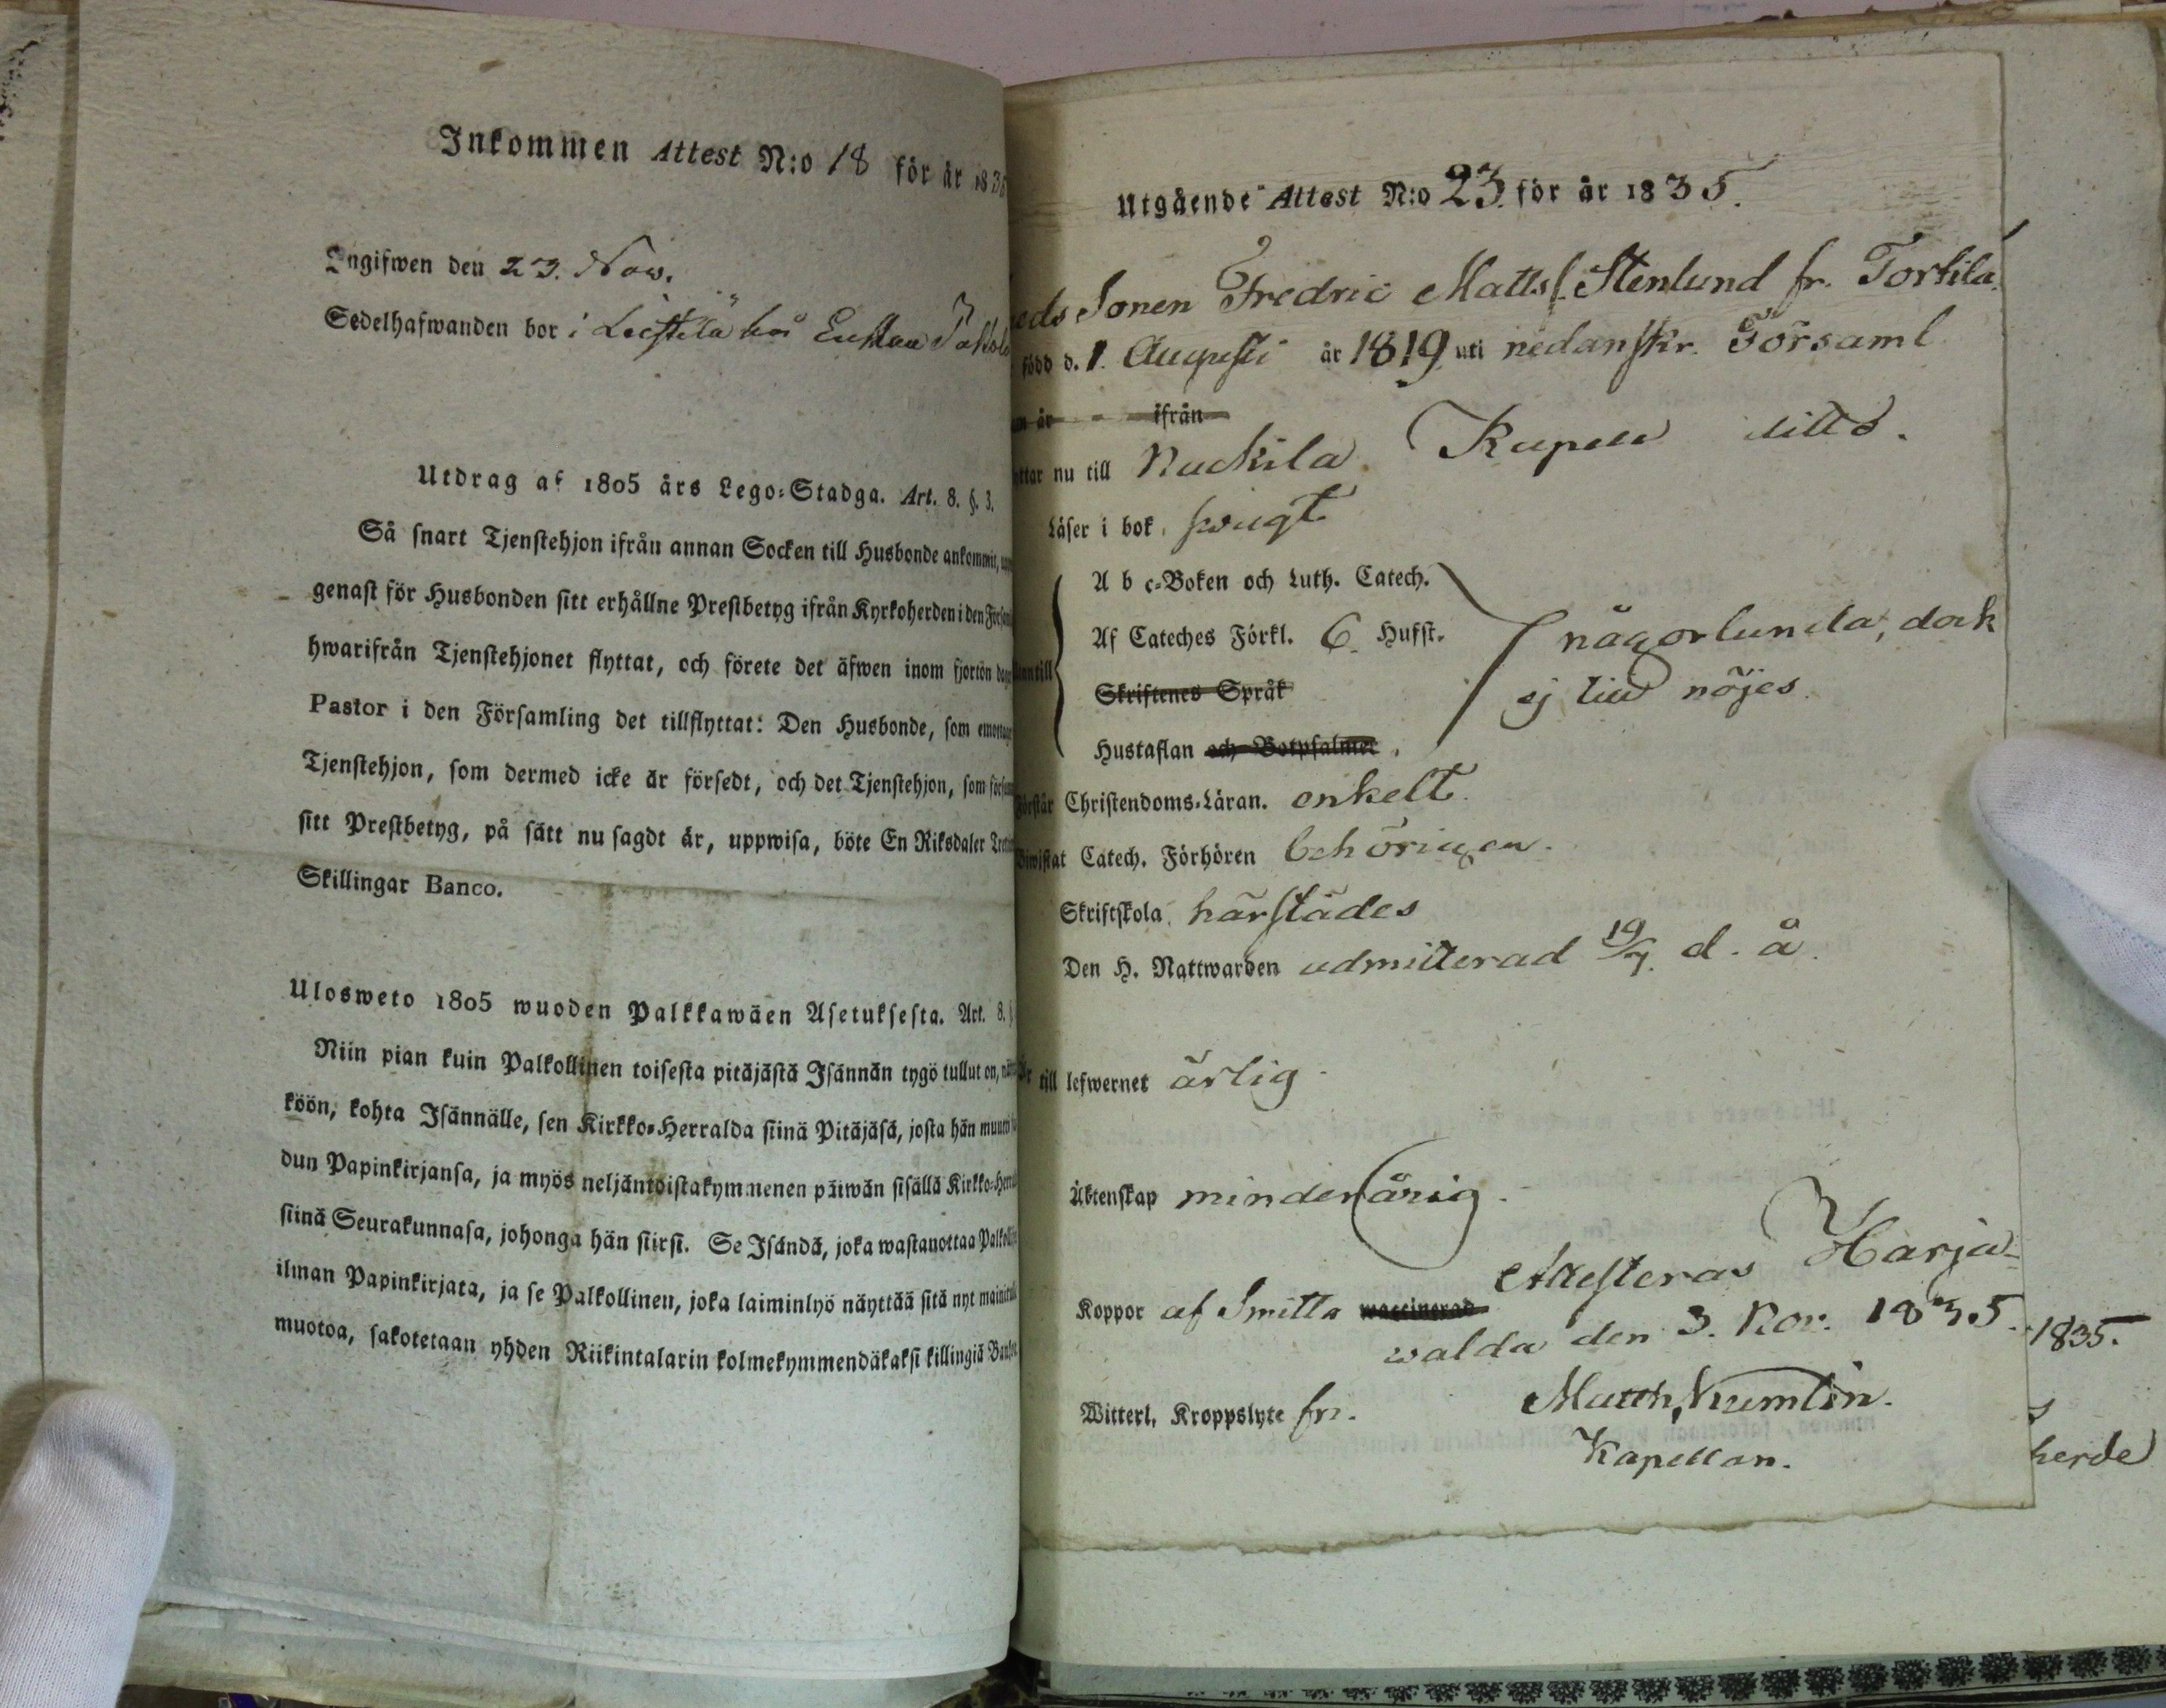 Inkommen Attest N:o 18 för år 183
Ingifwen den 23. Nov.
Sedelhafwanden bor i
Utdrag af 1805 års Lego-Stadga. Art. 8. §. 3.
Så snart Tjenstehjon ifrån annan Socken till Husbonde ankommit,
genast för Husbonden sitt erhållne Prestbetyg ifrån Kyrkoherden i den
hwarifrån Tjenstehjonet flyttat, och förete det äfwen inom fjorton
Pastor i den Församling det tillflyttat: Den Husbonde, som
Tjenstehjon, som dermed icke är försedt, och det Tjenstehjon, som
sitt Prestbetyg, på sätt nu sagdt är, uppwisa, böte En Riksdaler
Skillingar Banco.
Ulosweto 1805 wuoden Palkkawäen Asetuksesta. Art. 8.
Niin pian kuin Palkollinen toisesta pitäjästä Isännän tygö tullut on,
köön, kohta Isännälle, sen Kirkko-Herralda siinä Pitäjäsä, josta hän
dun Papinkirjansa, ja myös neljäntoistakymmenen päiwän sisällä
siinä Seurakunnasa, johonga hän siirsi. Se Isändä, joka wastanottaa
ilman Papinkirjata, ja se Palkollinen, joka laiminlyö näyttää sitä nyt
muotoa, sakotetaan yhden Riikintalarin kolmekymmendäkaksi killingiä
Utgående Attest N:o 23. för år 1835.
Sonen Fredric Matts. Stenlund fr. Torttila
född d. 1. Augusti år 1819 uti nedanskr. Församl
år ifrån
nu till Nuckila Kapell
Läser i bok, swagt
A b c-Boken och Luth. Catech.
Af Cateches Förkl. 6. Hufst.
någorlunda, dock
Skriftenes Språk
ej till nöjes.
Hustaflan och Botpsalmer
Christendoms-Läran. enkelt.
Catech. Förhören behörigen.
Skriftskola härstädes
Den H. Nattwarden admitterad 19/7. d. å.
till lefwernet ärlig
Äktenskap minderårig.
Attesteras Harja-
Koppor af Smitta waccinerad
walda den 3. Nov. 1835.
1835.
Witterl. Kroppslyte fri.
Matth. Kumlin.
Kapellan.
herde